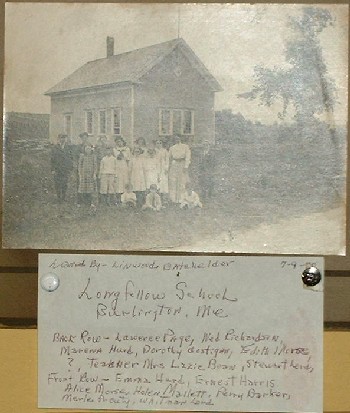 Loaned By - Linwood Batchelder 7-9-90
Longfellow School
Burlington, Me
Back Row - Lawrence Page, Ned Richardson,
Marena Hurd, Dorothy, Edith Morse
?, Teacher Mrs Lizzie Bean, Stewart
Front Row - Emma Hurd, Ernest Harris
Alice Morse, Helen Mallett, Perry Barker,
Merle